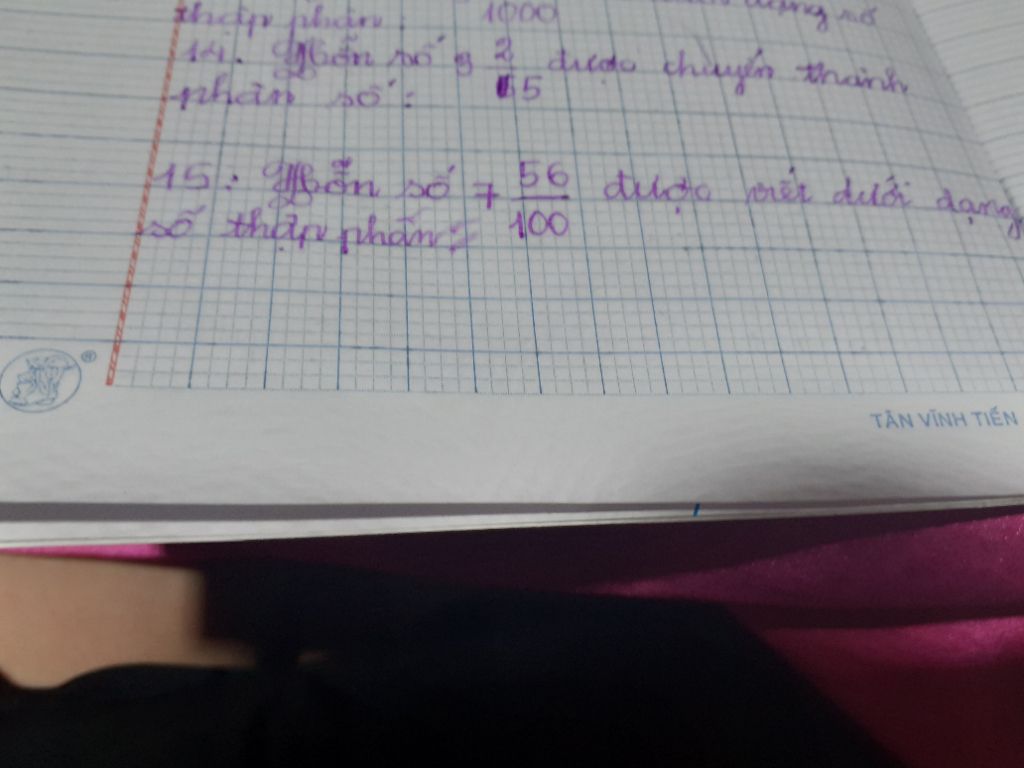 thập phân: 1000 số
14. Hỗn số 3 2/15 được chuyển thành
phân số:
15: Hỗn số 7 56/100 được viết dưới dạng
số thập phân:
®
TÂN VĨNH TIẾN